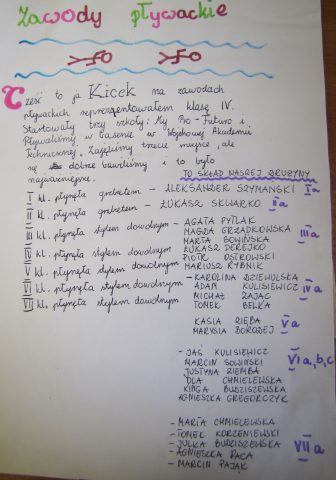 Zawody pływackie
Cześć to ja Kicek na zawodach
pływackich reprezentowałem klasę IV.
Startowały trzy szkoły: My Pro-Futuro i
Pływaliśmy w basenie w Wojskowej Akademii
Technicznej. Zajęliśmy trzecie miejsce, ale
się dobrze bawiliśmy i to było
najważniejsze.
TO SKŁAD NASZEJ DRUŻYNY
I kl. płynęła grzbietem - ALEKSANDER SZYMAŃSKI Ia
II kl. płynęła grzbietem - ŁUKASZ SKWARKO IIa
III kl. płynęła stylem dowolnym - AGATA PYTLAK
MAGDA GRZĄDKOWSKA IIIa
MARTA SOWIŃSKA
IV kl. płynęła stylem dowolnym ŁUKASZ DEREJKO
PIOTR OSTROWSKI
V kl. płynęła stylem dowolnym MARIUSZ RYBNIK
- KAROLINA DZIEWULSKA
VI kl. płynęła stylem dowolnym ADAM KULISIEWICZ IVa
MICHAŁ RAJĄC
VII kl. płynęła stylem dowolnym TOMEK BELKA
KASIA RIEBA
MARYSIA BORODEJ Va
- JAŚ KULISIEWICZ
MARCIN SOWIŃSKI VIa,b,c
JUSTYNA RIEMBA
OLA CHMIELEWSKA
KINGA BUDZISZEWSKA
AGNIESZKA GREGORCZYK
- MARTA CHMIELEWSKA
- TOMEK KORZENIEWSKI
- JULKA BUDZISZEWSKA VIIa
- AGNIESZKA RACA
- MARCIN PAJĄK